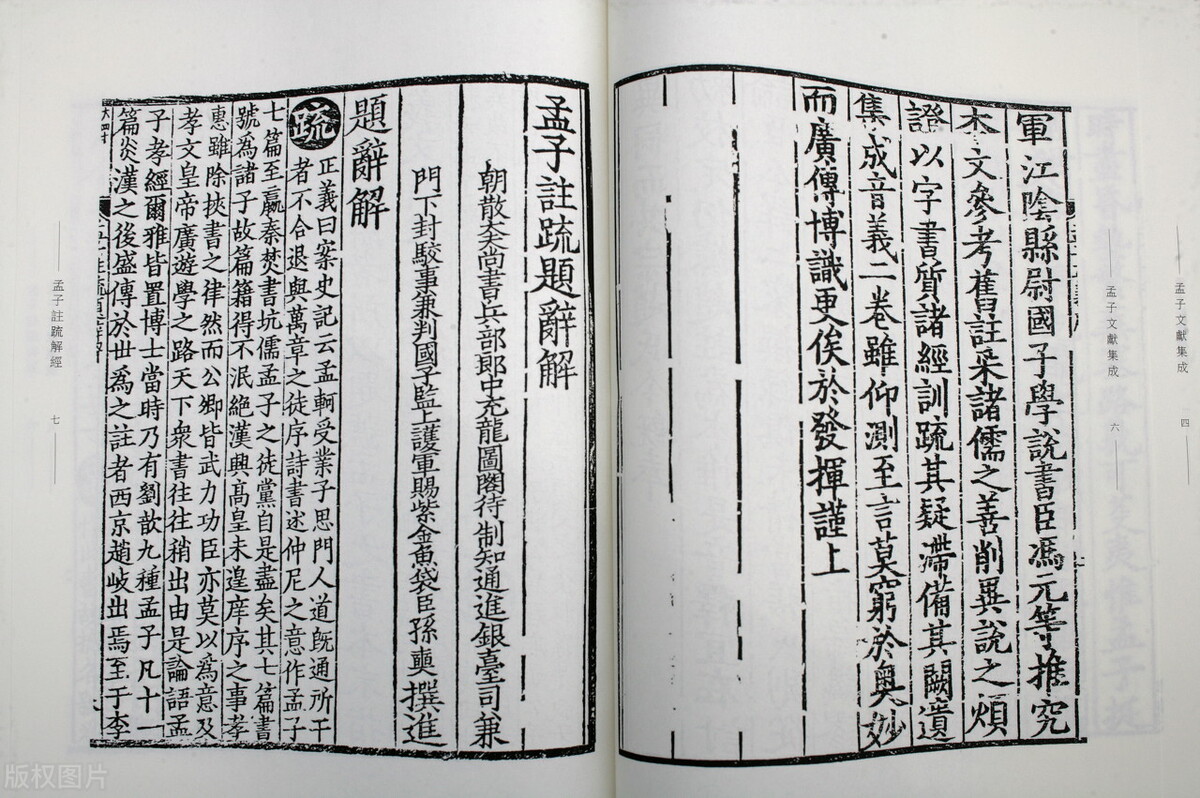 孟子文獻集成
四
孟子文獻集成
六
軍江陰縣尉國子學說書臣馮元等推究
本文參考舊註采諸儒之善削異說之煩
證以字書質諸經訓疏其疑滯備其闕遺
集成音義二卷雖仰測至言莫窮於奧妙
而廣傳博識更俟於發揮謹上
孟子註疏題辭解
朝散大夫尚書兵部郎中充龍圖閣待制知通進銀臺司兼
門下封駁事兼判國子監上護軍賜紫金魚袋臣孫奭撰進
題辭解
疏
正義曰案史記云孟軻受業子思門人道旣通所干
者不合退與萬章之徒序詩書述仲尼之意作孟子
七篇至嬴秦焚書坑儒孟子之徒黨自是盡矣其七篇書
號爲諸子故篇籍得不泯絕漢興高皇未遑庠序之事孝
惠雖除挾書之律然而公卿皆武力功臣亦莫以爲意及
孝文皇帝廣遊學之路天下衆書往往稍出由是論語孟
子孝經爾雅皆置博士當時乃有劉歆九種孟子凡十一
篇炎漢之後盛傳於世爲之註者西京趙岐出焉至于李
孟子註疏解經
七
版权图片